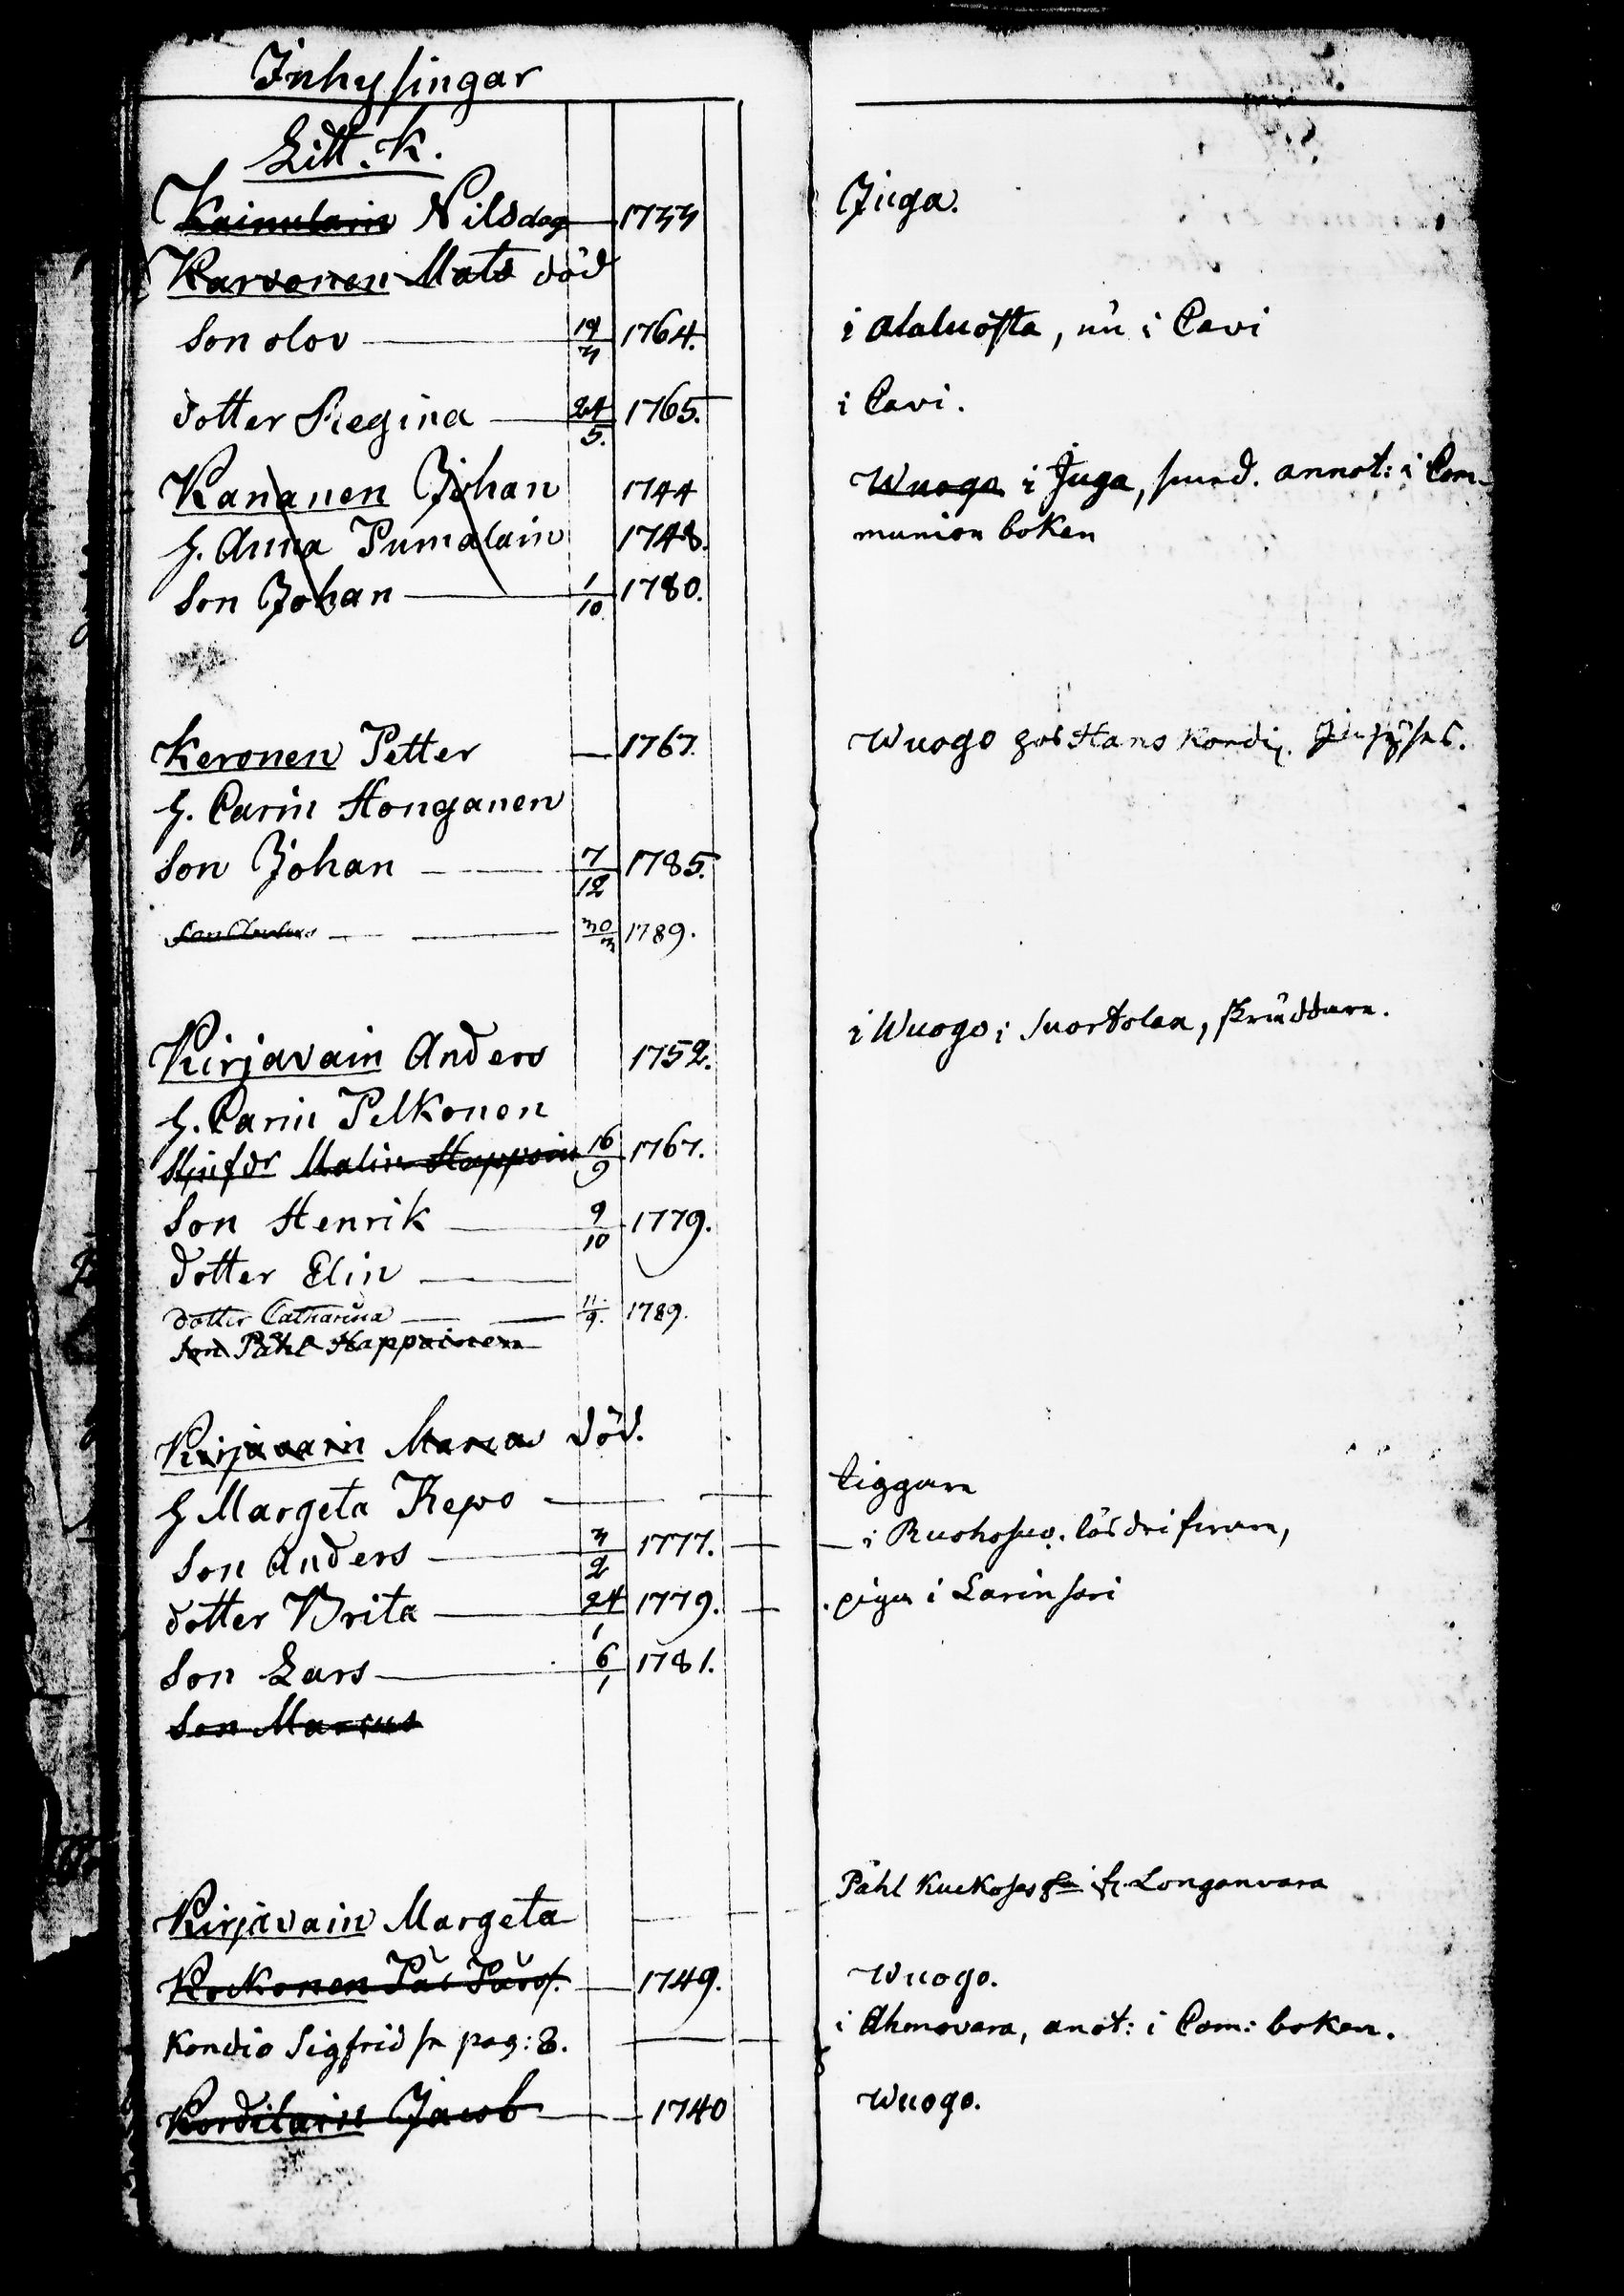 Inhysingar
Litt. K.
Kainulain Nilsdog 1733 Juga.
Karvonen Mats död
Son olov 19/3 1764. i alaluosta, nu i Cavi
dotter Regina 24/5. 1765. i Cavi.
Kananen Johan 1744 Wuogo i Juga, smed. annot: i Com-
h. Anna Pumalain 1748. munion boken
Son Johan 1/10 1780.
Keronen Petter 1767. Wuogo hos Hans
h. Carin Honganen
Son Johan 7/12 1785.
30/3 1789.
Kirjavain Anders 1752. i Wuogo i suortolax, skräddare.
h. Carin Pelkonen
Malin Happoin 16/9 1767.
Son Henrik 9/10 1779.
dotter Elin
dotter Catharina 11/9. 1789.
Son Påhl Happainen
Kirjavain död.
h Margeta Repo tiggare
Son Anders 3/2 1777. i Ruohosuo. lösdrifvare,
dotter Brita 24/1 1779. piga i Larinsari
Son Lars 6/1 1781.
Son Marcus
Kirjavain Margeta Påhl Kuckoses i Longanvara
Kockonen 1749. Wuogo.
Kondio Sigfrid se pag: 8. i Ahmovara, anot: i Com: boken.
Korditain Jacob 1740 Wuogo.